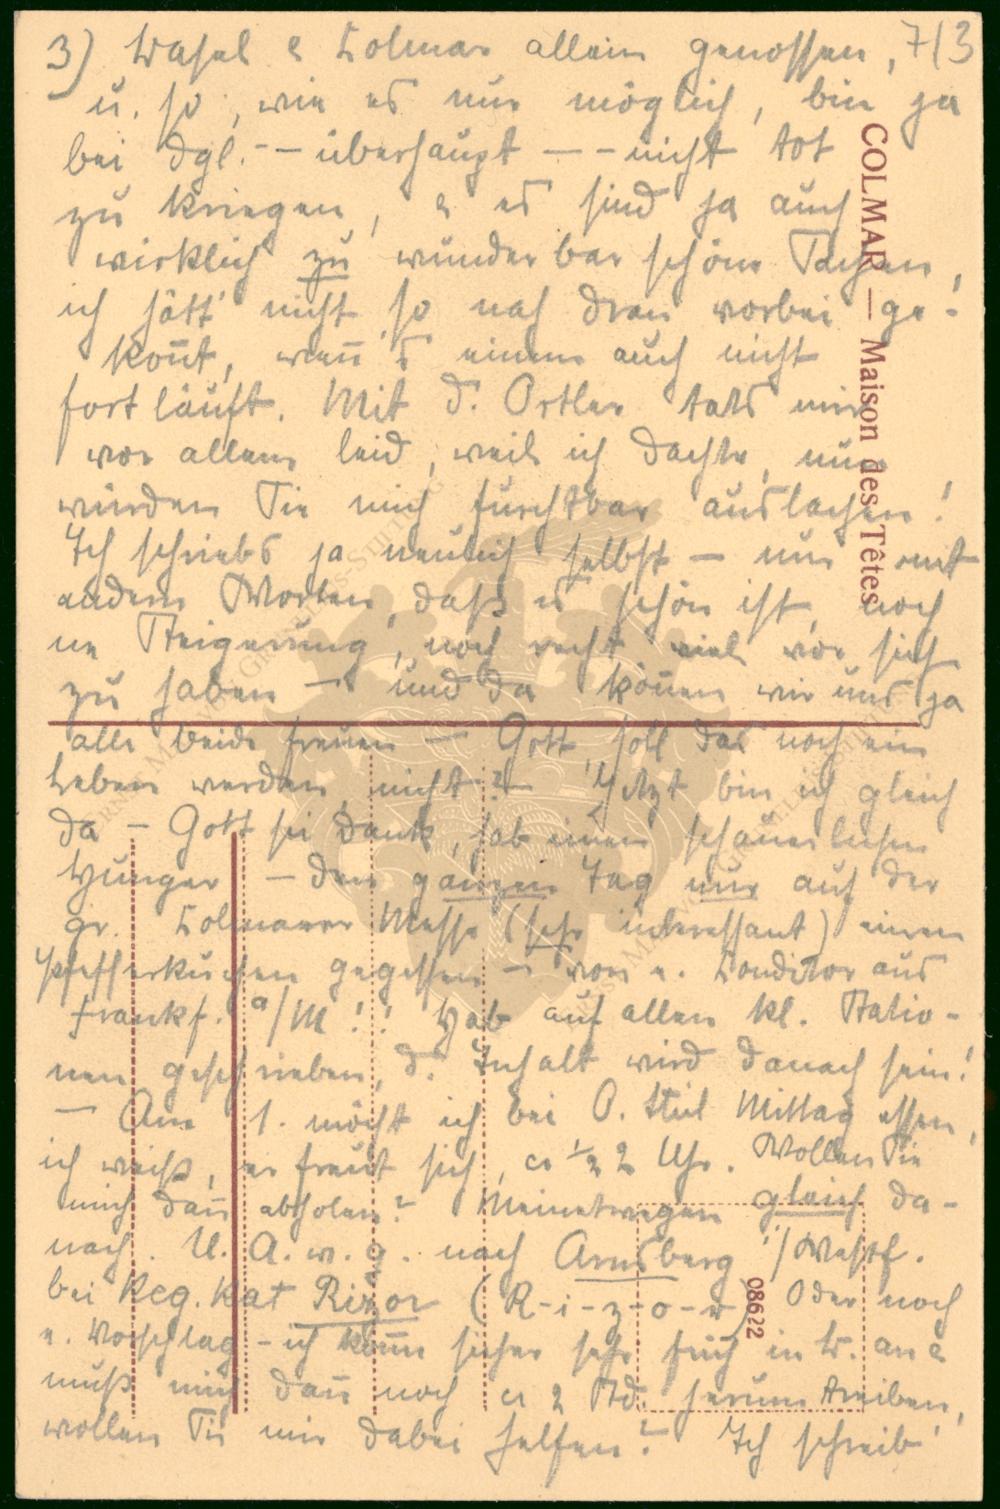 3) Basel & Colmar allein genossen, 7/3
u. so, wie es nur möglich, bin ja
bei dgl. -- überhaupt -- nicht tot
zu kriegen, & es sind ja auch
wirklich zu wunderbar schöne Sachen,
ich hätt' nicht so nah dran vorbei ge-
konnt, wenn's einem auch nicht
fortläuft. Mit d. Ortler tats mir
vor allem leid, weil ich dachte, nun
würden Sie mich furchtbar auslachen!
Ich schriebs ja neulich selbst – nur mit
andern Worten, daß es schön ist, noch
ne Steigerung, noch recht viel vor sich
zu haben – und da können wir uns ja
alle beide freuen – Gott, soll das noch ein
Leben werden, nicht? – Jetzt bin ich gleich
da – Gott sei Dank, hab einen schauerlichen
Hunger – den ganzen Tag nur auf der
gr. Colmarer Messe (sehr interessant) einen
Pfefferkuchen gegessen – von e. Conditor aus
Frankf. a/M!! Hab auf allen kl. Statio-
nen geschrieben, d. Inhalt wird danach sein!
– Am 1. möcht ich bei O. Stiel Mittag essen,
ich weiß, er freut sich, ca ½ 2 Uhr. Wollen Sie
mich dann abholen? Meinetwegen gleich da-
nach. U. A. w. g. nach Arnsberg i/Westf.
bei Reg. Rat Rizor (R-i-z-o-r) Oder noch
e. Vorschlag – ich komm sicher sehr früh in B. an &
muß mich dann noch ca 2 Std. herum treiben,
wollen Sie mir dabei helfen? Ich schreib
COLMAR — Maison des Têtes
08622